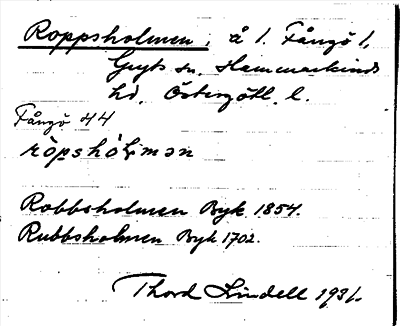 Roppsholmen, å 1. Fångö 1,
Gryts sn, Hammarkinds
hd, Östergötl. l.
Fångö 44
ròpshòlmən
Robbsholmen Byk 1854.
Rubbsholmen Byk 1702.
Thord Lindell 1931.